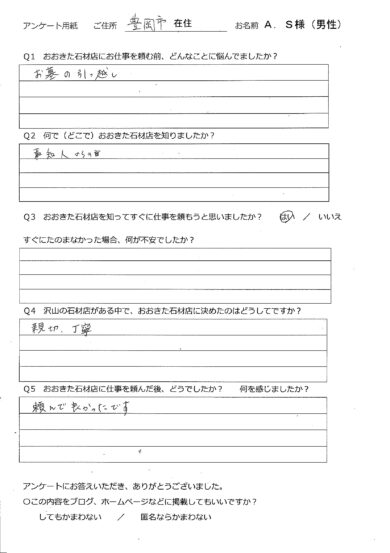 アンケート用紙 ご住所 豊岡市 在住 お名前 A. S様（男性）
Q1 おおきた石材店にお仕事を頼む前、どんなことに悩んでましたか？
お墓の引っ越し
Q2 何で（どこで）おおきた石材店を知りましたか？
知人
Q3 おおきた石材店を知ってすぐに仕事を頼もうと思いましたか？ はい ／ いいえ
すぐにたのまなかった場合、何が不安でしたか？
Q4 沢山の石材店がある中で、おおきた石材店に決めたのはどうしてですか？
親切、丁寧
Q5 おおきた石材店に仕事を頼んだ後、どうでしたか？ 何を感じましたか？
頼んで良かったです
アンケートにお答えいただき、ありがとうございました。
〇この内容をブログ、ホームページなどに掲載してもいいですか？
してもかまわない ／ 匿名ならかまわない